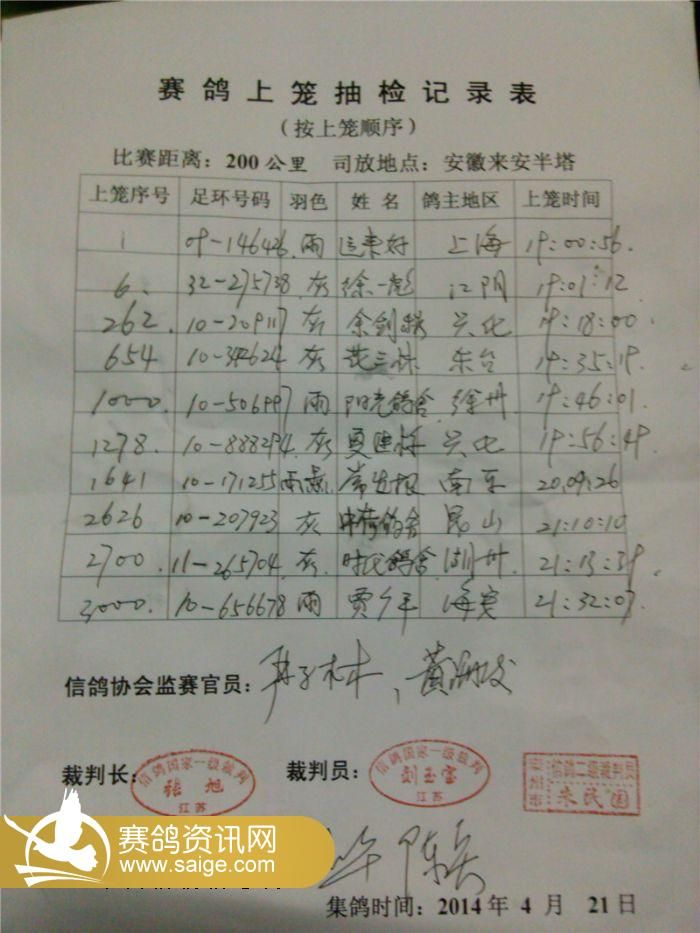 赛鸽上笼抽检记录表
（按上笼顺序）
比赛距离：200公里 司放地点：安徽来安半塔
上笼序号 足环号码 羽色 姓名 鸽主地区 上笼时间
1 09-146426 雨 运来好 上海 19:00:56
6 32-275738 灰 徐一彪 江阴 19:01:12
262 10-209117 灰 余剑 兴化 19:18:00
654 10-342624 灰 三林 东台 19:35:19
1000 10-506997 雨 阳光鸽舍 徐州 19:46:01
1278 10-888294 灰 夏进 兴化 19:56:49
1641 10-171255 雨 常生根 南京 20:09:26
2626 10-207923 灰 鸽舍 昆山 21:10:10
2700 11-265704 灰 时代鸽舍 湖州 21:13:39
3000 10-656678 雨 贾年 海安 21:32:07
信鸽协会监赛官员： 林、黄
裁判长： 信鸽国家一级裁判 张旭 江苏
裁判员： 信鸽国家一级裁判 刘玉宝 江苏
信鸽二级裁判员 朱民国
陈兵
集鸽时间：2014年 4 月 21日
赛鸽资讯网
www.saige.com